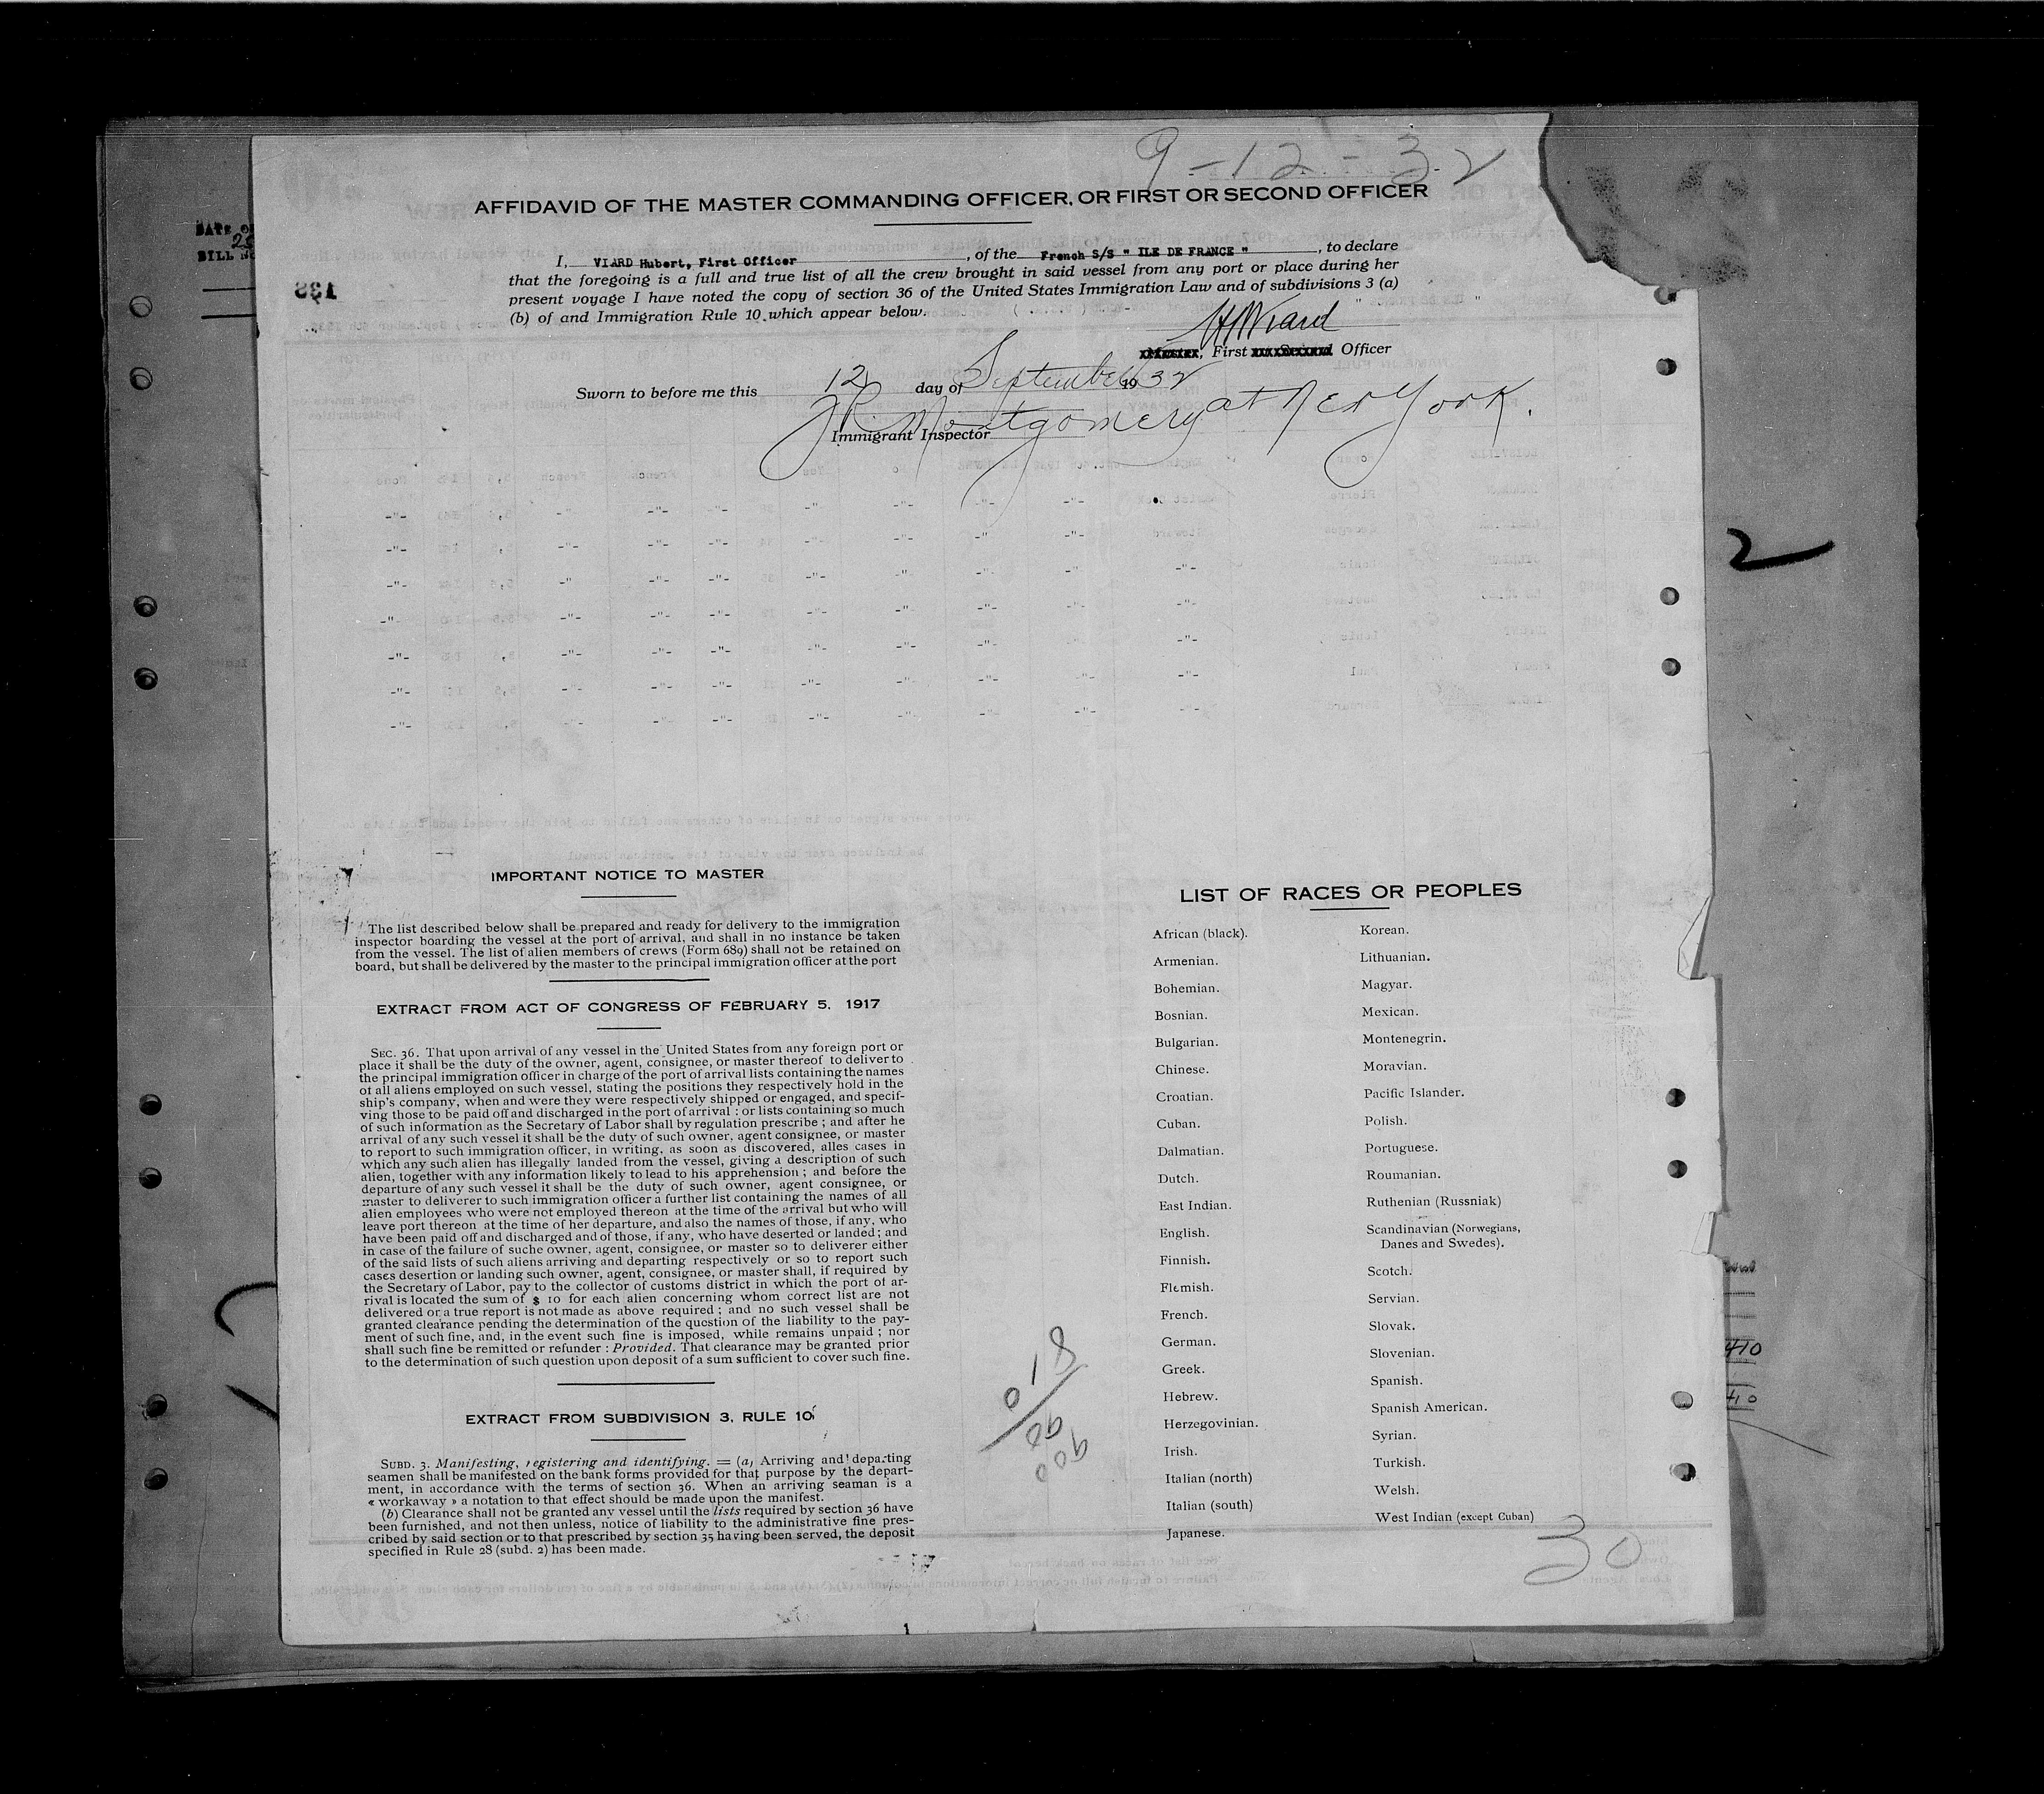 9-12-32
AFFIDAVID OF THE MASTER COMMANDING OFFICER, OR FIRST OR SECOND OFFICER
I, VIARD Hubert, First Officer, of the French S/S " ILE DE FRANCE ", to declare
that the foregoing is a full and true list of all the crew brought in said vessel from any port or place during her
present voyage I have noted the copy of section 36 of the United States Immigration Law and of subdivisions 3 (a)
(b) of and Immigration Rule 10 which appear below.
HViard
First Officer
Sworn to before me this 12 day of September 1932
Montgomery at New York.
Immigrant Inspector
2
IMPORTANT NOTICE TO MASTER
The list described below shall be prepared and ready for delivery to the immigration
inspector boarding the vessel at the port of arrival, and shall in no instance be taken
from the vessel. The list of alien members of crews (Form 689) shall not be retained on
board, but shall be delivered by the master to the principal immigration officer at the port
EXTRACT FROM ACT OF CONGRESS OF FEBRUARY 5, 1917
SEC. 36. That upon arrival of any vessel in the United States from any foreign port or
place it shall be the duty of the owner, agent, consignee, or master thereof to deliver to
the principal immigration officer in charge of the port of arrival lists containing the names
of all aliens employed on such vessel, stating the positions they respectively hold in the
ship's company, when and were they were respectively shipped or engaged, and specif-
ving those to be paid off and discharged in the port of arrival : or lists containing so much
of such information as the Secretary of Labor shall by regulation prescribe ; and after he
arrival of any such vessel it shall be the duty of such owner, agent consignee, or master
to report to such immigration officer, in writing, as soon as discovered, alles cases in
which any such alien has illegally landed from the vessel, giving a description of such
alien, together with any information likely to lead to his apprehension ; and before the
departure of any such vessel it shall be the duty of such owner, agent consignee, or
master to deliver to such immigration officer a further list containing the names of all
alien employees who were not employed thereon at the time of the arrival but who will
leave port thereon at the time of her departure, and also the names of those, if any, who
have been paid off and discharged and of those, if any, who have deserted or landed ; and
in case of the failure of suche owner, agent, consignee, or master so to deliverer either
of the said lists of such aliens arriving and departing respectively or so to report such
cases desertion or landing such owner, agent, consignee, or master shall, if required by
the Secretary of Labor, pay to the collector of customs district in which the port of ar-
rival is located the sum of $ 10 for each alien concerning whom correct list are not
delivered or a true report is not made as above required ; and no such vessel shall be
granted clearance pending the determination of the question of the liability to the pay-
ment of such fine, and, in the event such fine is imposed, while remains unpaid ; nor
shall such fine be remitted or refunder : Provided. That clearance may be granted prior
to the determination of such question upon deposit of a sum sufficient to cover such fine.
EXTRACT FROM SUBDIVISION 3, RULE 10
SUBD. 3. Manifesting, registering and identifying. = (a) Arriving and departing
seamen shall be manifested on the bank forms provided for that purpose by the depart-
ment, in accordance with the terms of section 36. When an arriving seaman is a
« workaway » a notation to that effect should be made upon the manifest.
(b) Clearance shall not be granted any vessel until the lists required by section 36 have
been furnished, and not then unless, notice of liability to the administrative fine pres-
cribed by said section or to that prescribed by section 35 having been served, the deposit
specified in Rule 28 (subd. 2) has been made.
LIST OF RACES OR PEOPLES
African (black).
Armenian.
Bohemian.
Bosnian.
Bulgarian.
Chinese.
Croatian.
Cuban.
Dalmatian.
Dutch.
East Indian.
English.
Finnish.
Flemish.
French.
German.
Greek.
Hebrew.
Herzegovinian.
Irish.
Italian (north)
Italian (south)
Japanese.
Korean.
Lithuanian.
Magyar.
Mexican.
Montenegrin.
Moravian.
Pacific Islander.
Polish.
Portuguese.
Roumanian.
Ruthenian (Russniak)
Scandinavian (Norwegians,
Danes and Swedes).
Scotch.
Servian.
Slovak.
Slovenian.
Spanish.
Spanish American.
Syrian.
Turkish.
Welsh.
West Indian (except Cuban)
30